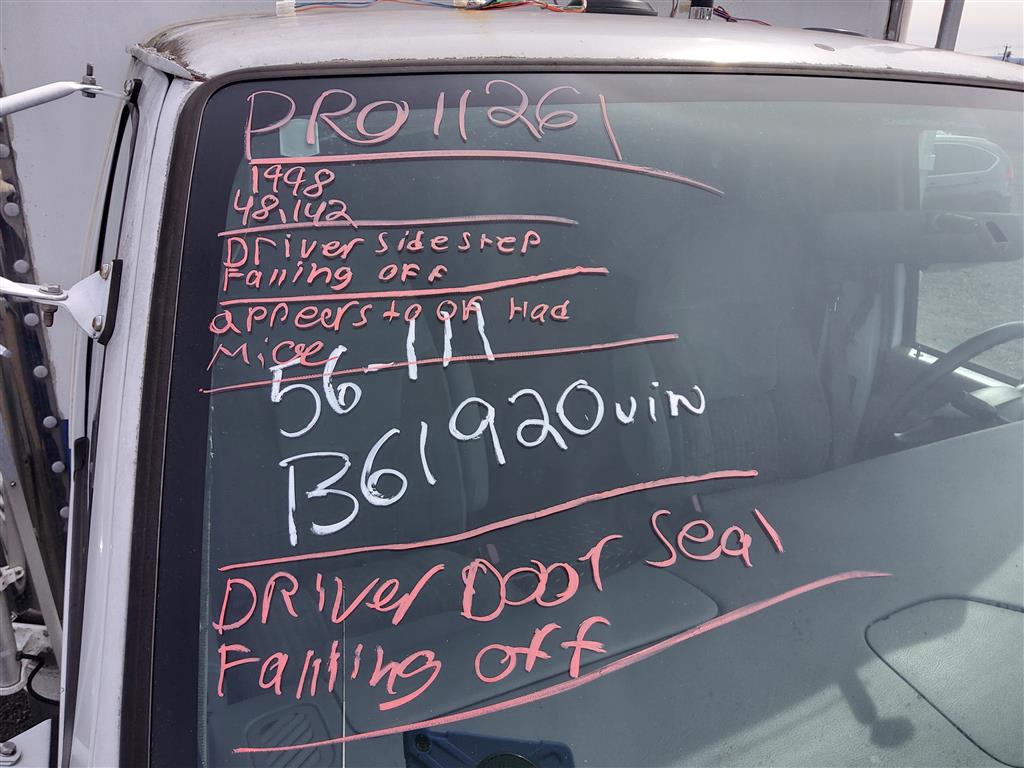 PRO 11261
1998
48,142
Driver side step
Falling off
appeers to of Had
Mice
56-111
B61920 vin
DRiver Door Seal
Falling off